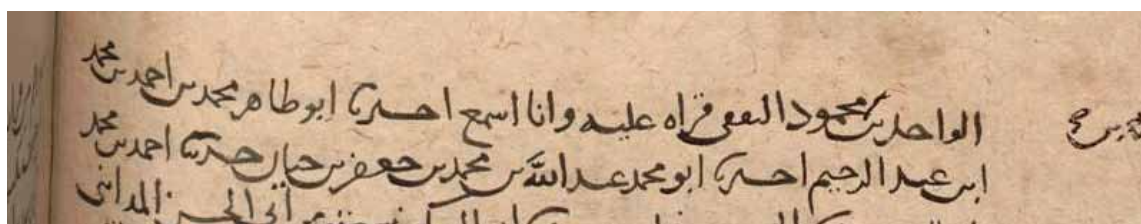 الواحد بن محمود الثقفي قراه عليه وانا اسمع اخبرنا ابو طاهر محمد بن احمد بن محمد
ابن عبد الرحيم اخبرنا ابو محمد عبد الله بن محمد بن جعفر بن حيان حدثنا احمد بن محمد